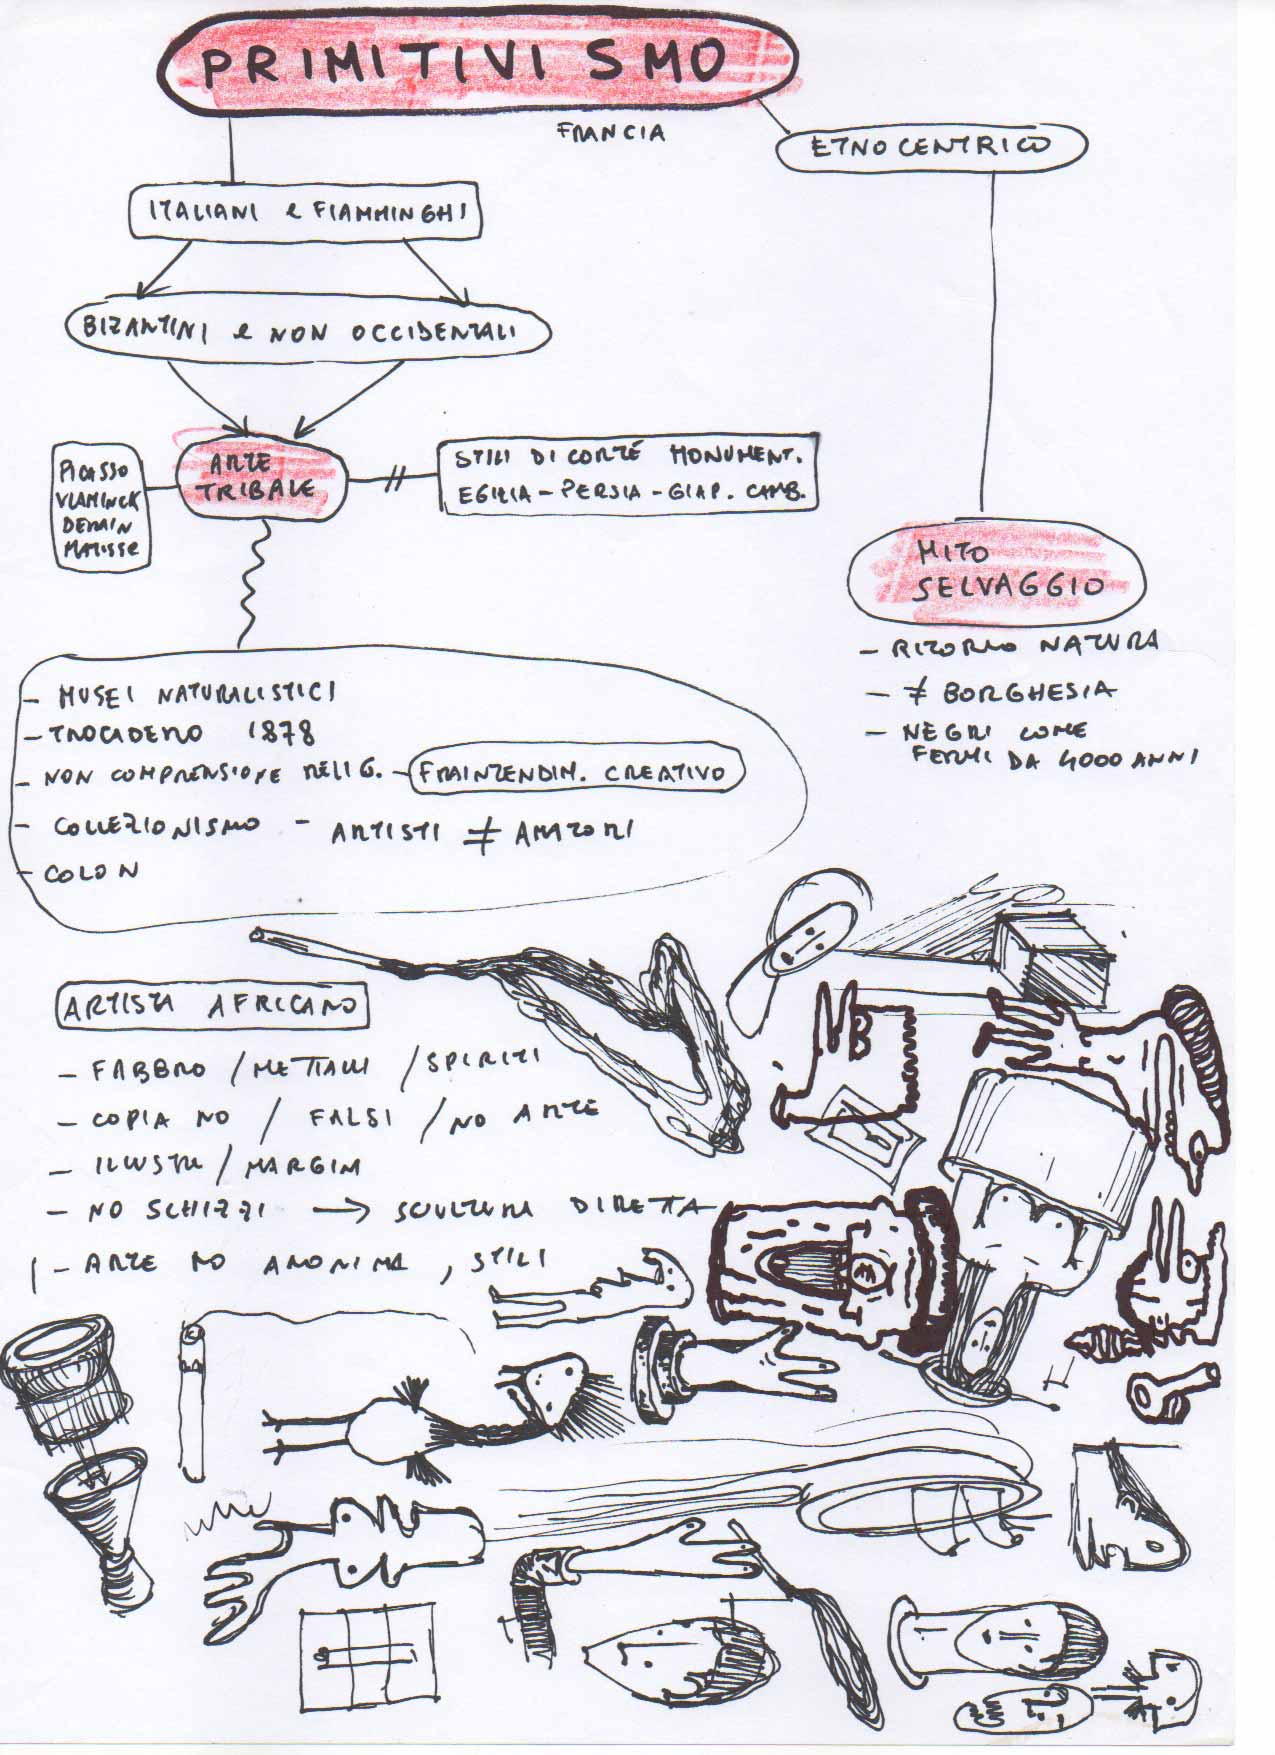 PRIMITIVISMO
FRANCIA
ETNOCENTRICO
ITALIANI e FIAMMINGHI
BIZANTINI e NON OCCIDENTALI
PICASSO
VLAMINCK
DERAIN
MATISSE
ARTE
TRIBALE
STILI DI CORTE MONUMENT.
EGIZIA - PERSIA - GIAP. CAMB.
MITO
SELVAGGIO
- RITORNO NATURA
- ≠ BORGHESIA
- NEGRI COME
FERMI DA 4000 ANNI
- MUSEI NATURALISTICI
- TROCADERO 1878
- NON COMPRENSIONE RELIG. - FRAINTENDIM. CREATIVO
- COLLEZIONISMO - ARTISTI ≠ AMATORI
- COLON
ARTISTA AFRICANO
- FABBRO / METALLI / SPIRITI
- COPIA NO / FALSI / NO ARTE
- ILLUSTRI / MARGINI
- NO SCHIZZI → SCULTURA DIRETTA
- ARTE NO ANONIMA, STILI